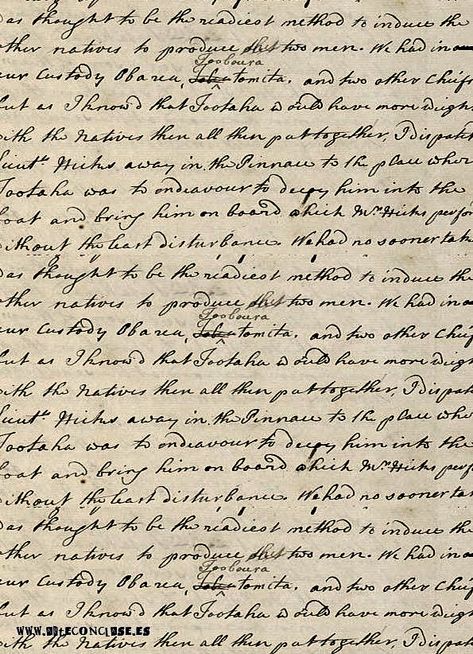 as thought to be the readiest method to induce the
other natives to produce the two men. We had in
Tooboura
our Custody Obarea, tomita, and two other Chiefs
but as I know'd that Tootaha would have more weight
with the Natives then all then put together, I dispatch
Lieutt. Hicks away in the Pinnace to the place where
Tootaha was to endeavour to decoy him into the
boat and bring him on board which Mr. Hicks perfo
without the least disturbance. We had no sooner take
as thought to be the readiest method to induce the
other natives to produce the two men. We had in
Tooboura
our Custody Obarea, tomita, and two other Chiefs
but as I know'd that Tootaha would have more weight
with the Natives then all then put together, I dispatch
Lieutt. Hicks away in the Pinnace to the place where
Tootaha was to endeavour to decoy him into the
boat and bring him on board which Mr. Hicks perfo
without the least disturbance. We had no sooner take
as thought to be the readiest method to induce the
other natives to produce the two men. We had in
Tooboura
our Custody Obarea, tomita, and two other Chiefs
but as I know'd that Tootaha would have more weight
with the Natives then all then put together, I dispatch